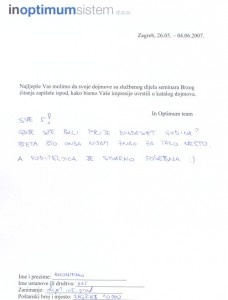 inoptimumsistem d.o.o.
Zagreb, 26.05. - 04.06.2007.
Najljepše Vas molimo da svoje dojmove sa službenog dijela seminara Brzog
čitanja zapišete ispod, kako bismo Vaše impresije uvrstili u katalog dojmova.
In Optimum team
SVE 5!
GDJE STE BILI PRIJE DVADESET GODINA?
ŠTETA ŠTO ONDA NISAM ZNAO ZA TAKO NEŠTO.
A VODITELJICA JE STVARNO
Ime i prezime:
Ime ustanove ili društva:
Zanimanje:
Poštanski broj i mjesto: ZAGREB 10 000